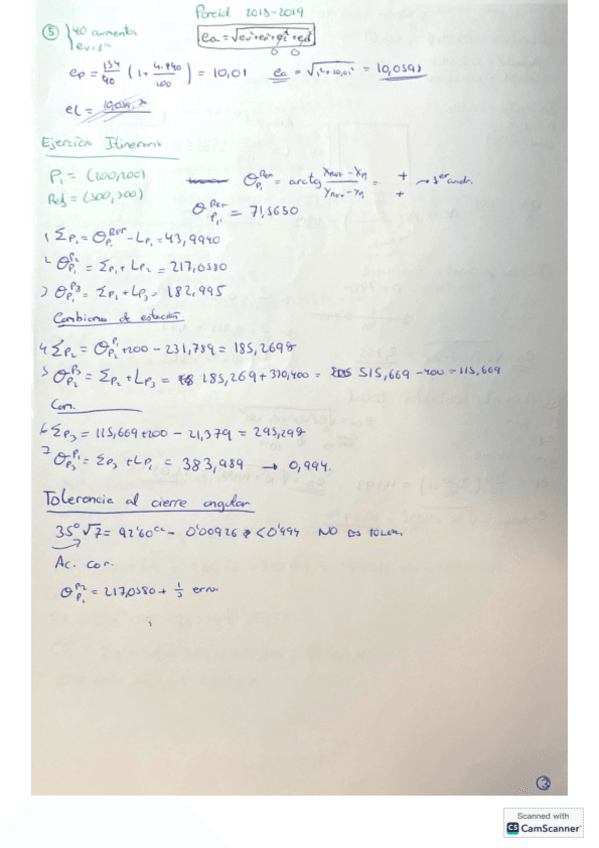 Parcial 2018-2019
⑤ 40 aumentos ea = √ev²+ep²+ei²+ed²
ev = 1"
0 0
ep = 154/40 (1 + 4.440/100) = 10,01 ea = √1²+10,01² = 10,0598
el =
Ejercicio Itinerario
P₁ = (200,200) θ P₁ Ref = arctg Xref - Xp₁ / Yref - Yp₁ = + / + → 1er cuadr.
Ref = (500,300) θ P₁ Ref = 71,5650
1 Σp₁ = θ P₁ Ref - Lp₁ = 43,9940
2 θ P₁ P₂ = Σp₁ + Lp₂ = 217,0580
3 θ P₁ P₃ = Σp₁ + Lp₃ = 182,995
Cambiamos de estación
4 Σp₂ = θ P₂ P₁ + 200 - 231,789 = 185,2698
5 θ P₂ P₃ = Σp₂ + Lp₃ = 185,269 + 330,400 = 515,669 - 400 = 115,669
Cam.
6 Σp₃ = 115,669 + 200 - 21,379 = 295,298
7 θ P₃ P₁ = Σp₃ + Lp₁ = 383,989 → 0,994.
Tolerancia al cierre angular
35 √7 = 92'60 cc - 0'00926 < 0'994 NO ES TOLER.
Ac. cor.
θ P₁ P₂ = 217,0580 + 1/3 error
③
Scanned with
CS CamScanner